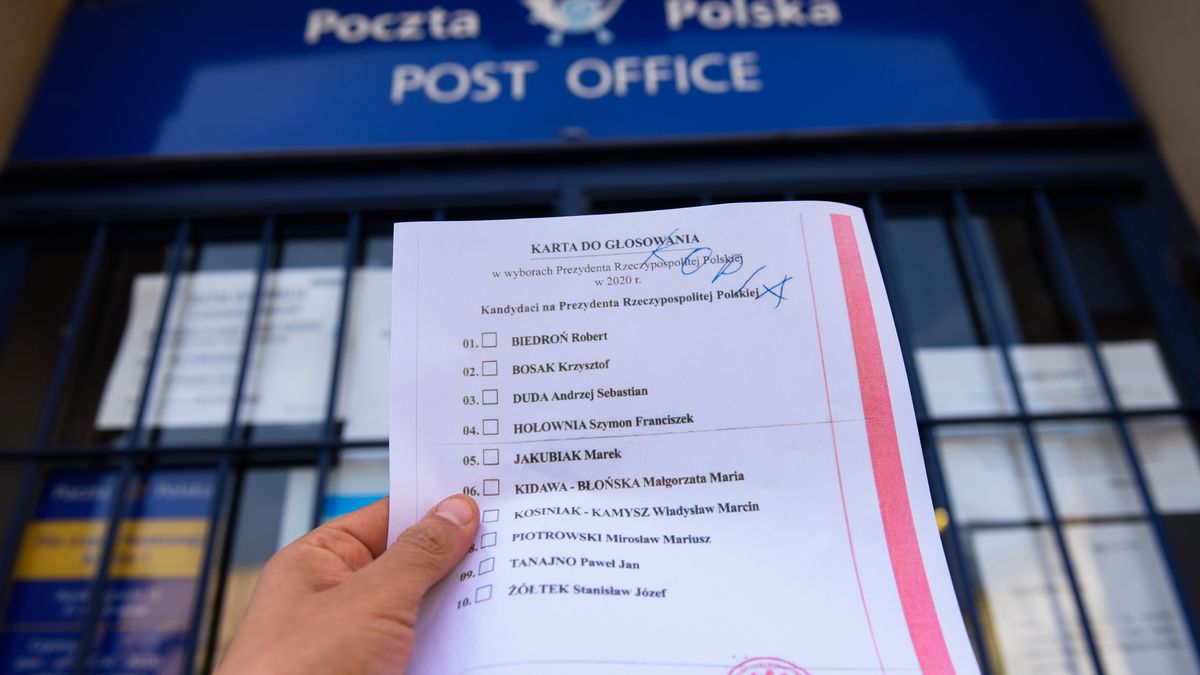 Poczta Polska
POST OFFICE
KARTA DO GŁOSOWANIA
w wyborach Prezydenta Rzeczypospolitej Polskiej
w 2020 r.
KOPIA
Kandydaci na Prezydenta Rzeczypospolitej Polskiej
01. BIEDROŃ Robert
02. BOSAK Krzysztof
03. DUDA Andrzej Sebastian
04. HOŁOWNIA Szymon Franciszek
05. JAKUBIAK Marek
06. KIDAWA - BŁOŃSKA Małgorzata Maria
KOSINIAK - KAMYSZ Władysław Marcin
8. PIOTROWSKI Mirosław Mariusz
09. TANAJNO Paweł Jan
10. ŻÓŁTEK Stanisław Józef
Poczta Polska